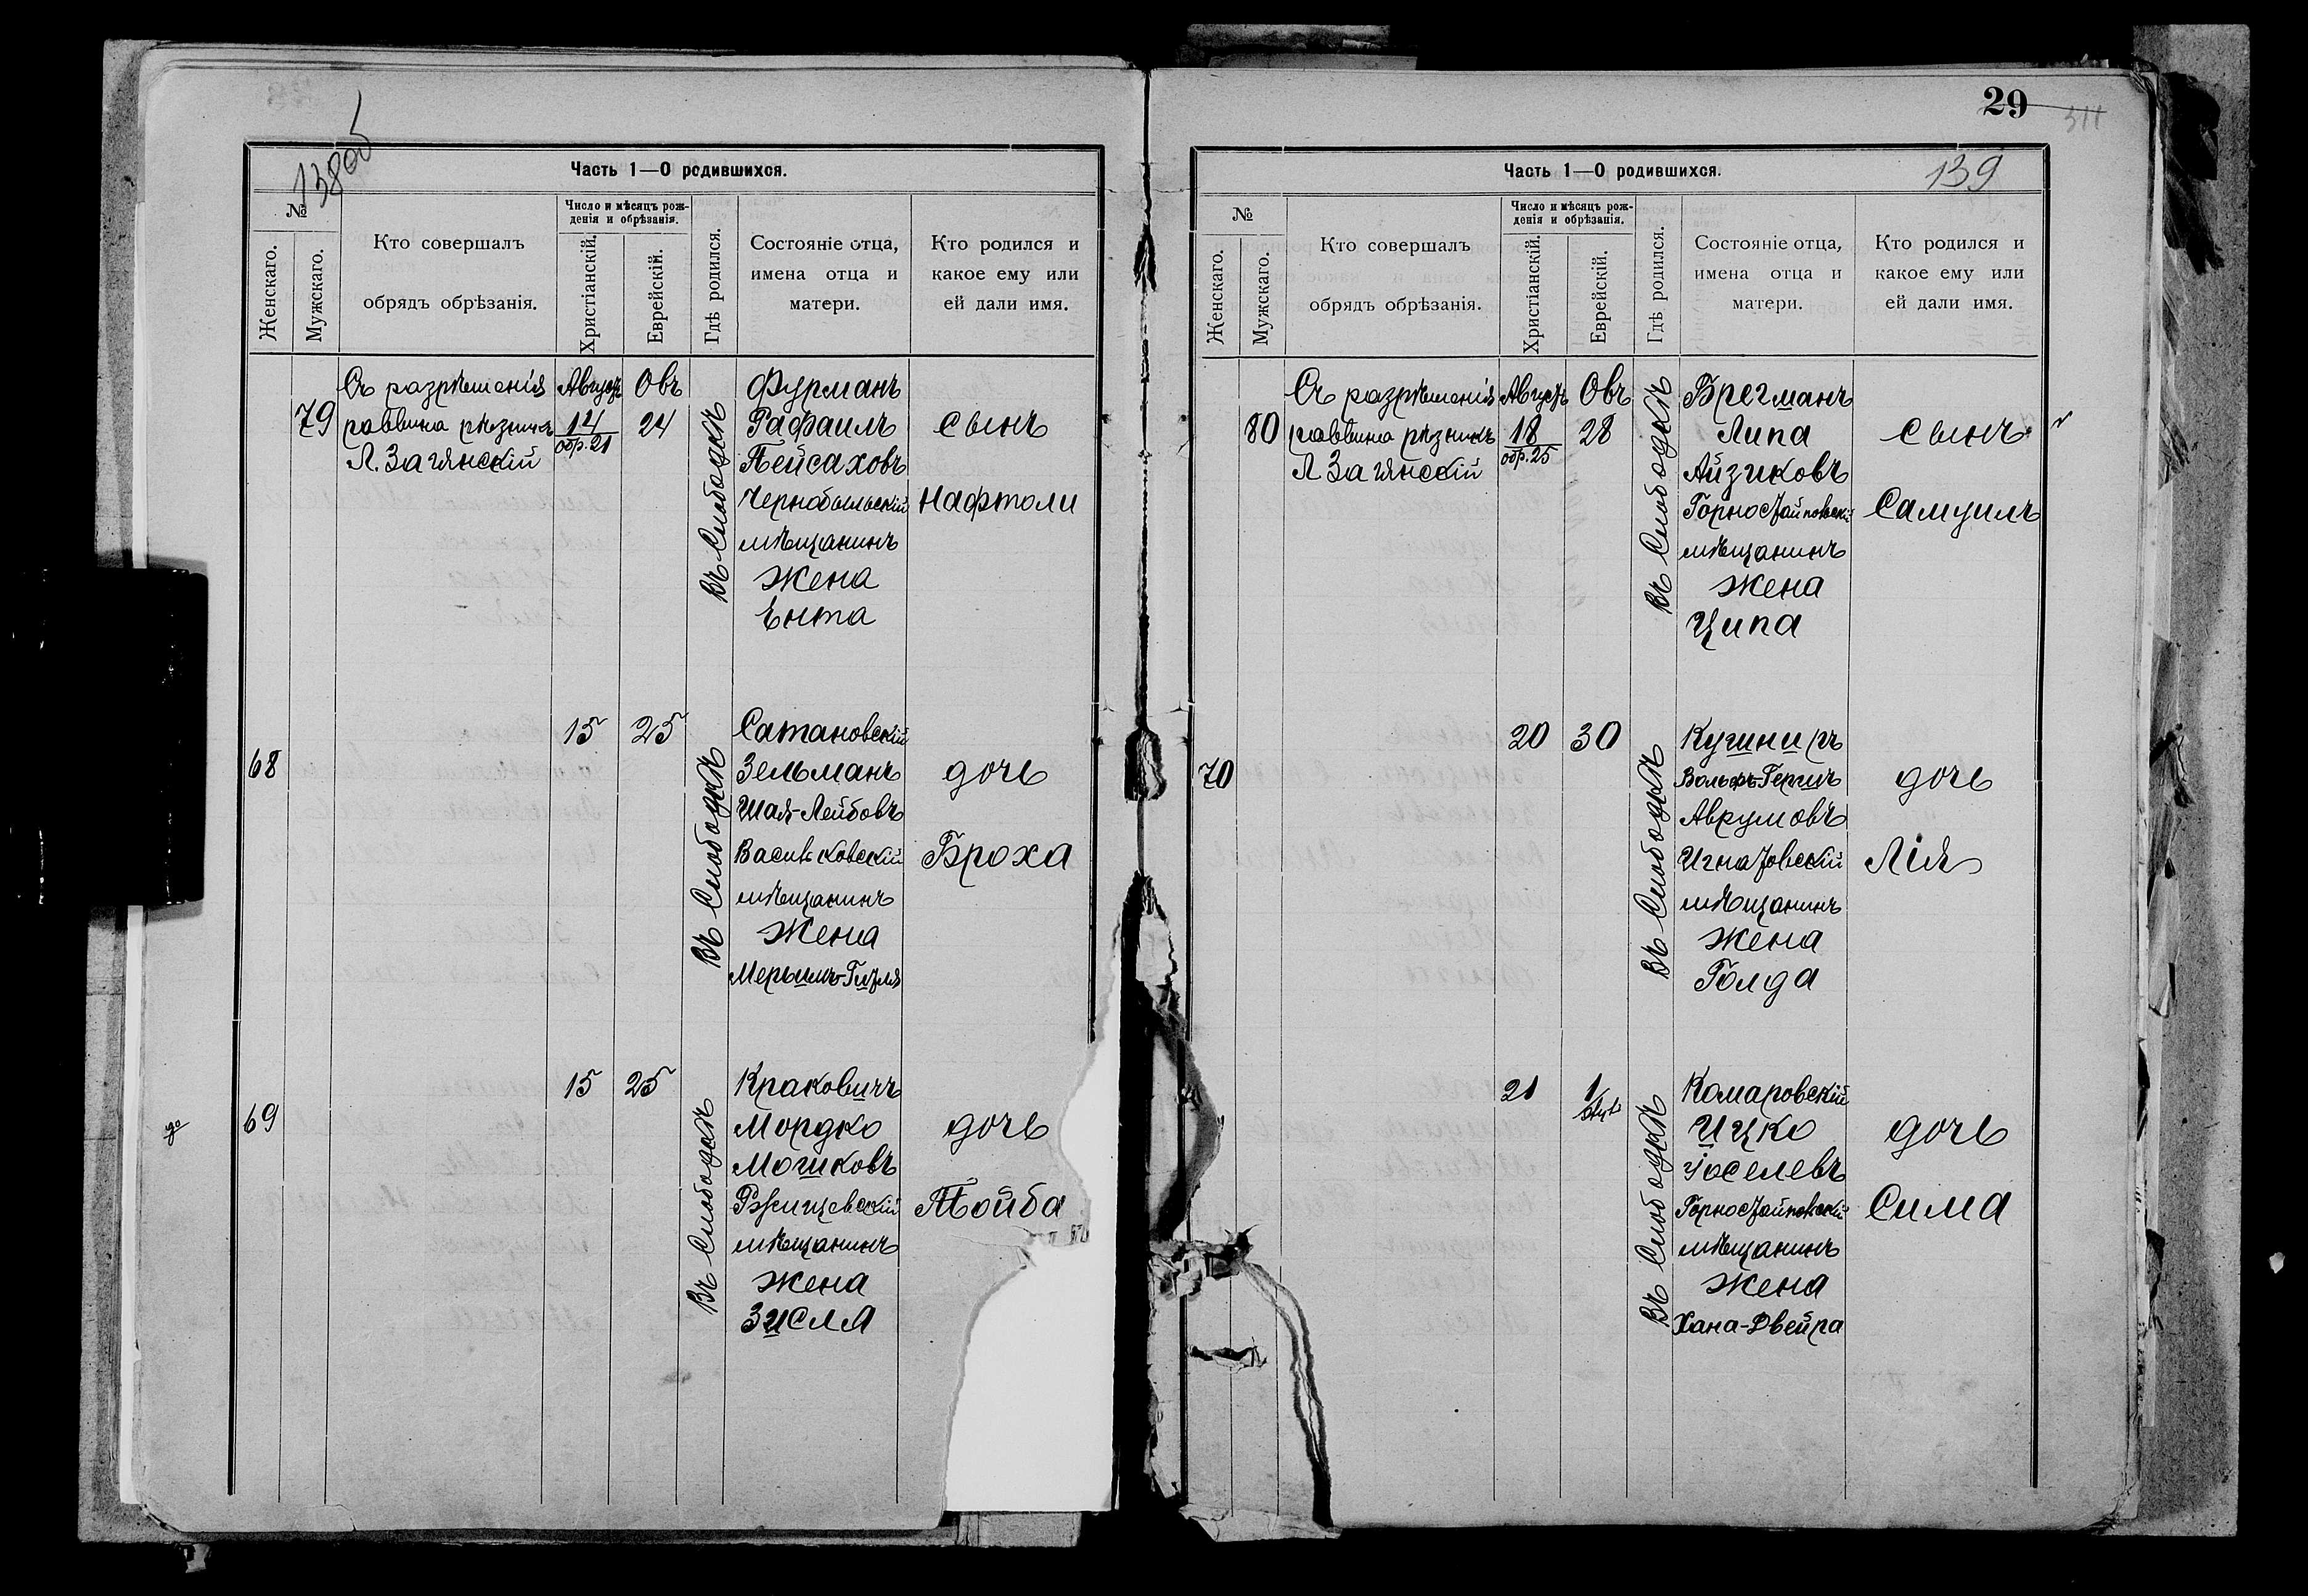 138об
Часть 1—О родившихся.
№
Женскаго.
Мужскаго.
Кто совершалъ
обрядъ обрѣзанія.
Число и мѣсяцъ рож-
денія и обрѣзанія.
Христіанскій.
Еврейскій.
Гдѣ родился.
Состояніе отца,
имена отца и
матери.
Кто родился и
какое ему или
ей дали имя.
79
Съ разрѣшенія
раввина рѣзникъ
Л. Загянскій
Августъ
14
обр. 21
Овъ
24
Въ Слободкѣ
Фурманъ
Рафаилъ
Пейсаховъ
Чернобыльскій
мѣщанинъ
жена
Ента
сынъ
Нафтоли
68
15
25
Въ Слободкѣ
Сатановскій
Зельманъ
Шая-Лейбовъ
Васильковскій
мѣщанинъ
жена
Мерымъ-Гитля
дочь
Броха
69
15
25
Въ Слободкѣ
Краковичъ
Мордко
Мошковъ
Ржищевскій
мѣщанинъ
жена
Зисля
дочь
Тойба
29
Часть 1—О родившихся.
139
№
Женскаго.
Мужскаго.
Кто совершалъ
обрядъ обрѣзанія.
Число и мѣсяцъ рож-
денія и обрѣзанія.
Христіанскій.
Еврейскій.
Гдѣ родился.
Состояніе отца,
имена отца и
матери.
Кто родился и
какое ему или
ей дали имя.
80
Съ разрѣшенія
раввина рѣзникъ
Л Загянскій
Августъ
18
обр. 25
Овъ
28
Въ Слободкѣ
Брегманъ
Липа
Айзиковъ
Горностайповскій
мѣщанинъ
жена
Ципа
сынъ
Самуилъ
70
20
30
Въ Слободкѣ
Кушниръ
Вольфъ-Гершъ
Аврумовъ
Игнатовскій
мѣщанинъ
жена
Голда
дочь
Лія
21
1
Въ Слободкѣ
Комаровскій
Ицко
Іоселевъ
Горностайповскій
мѣщанинъ
жена
Хана-Двейра
дочь
Сима